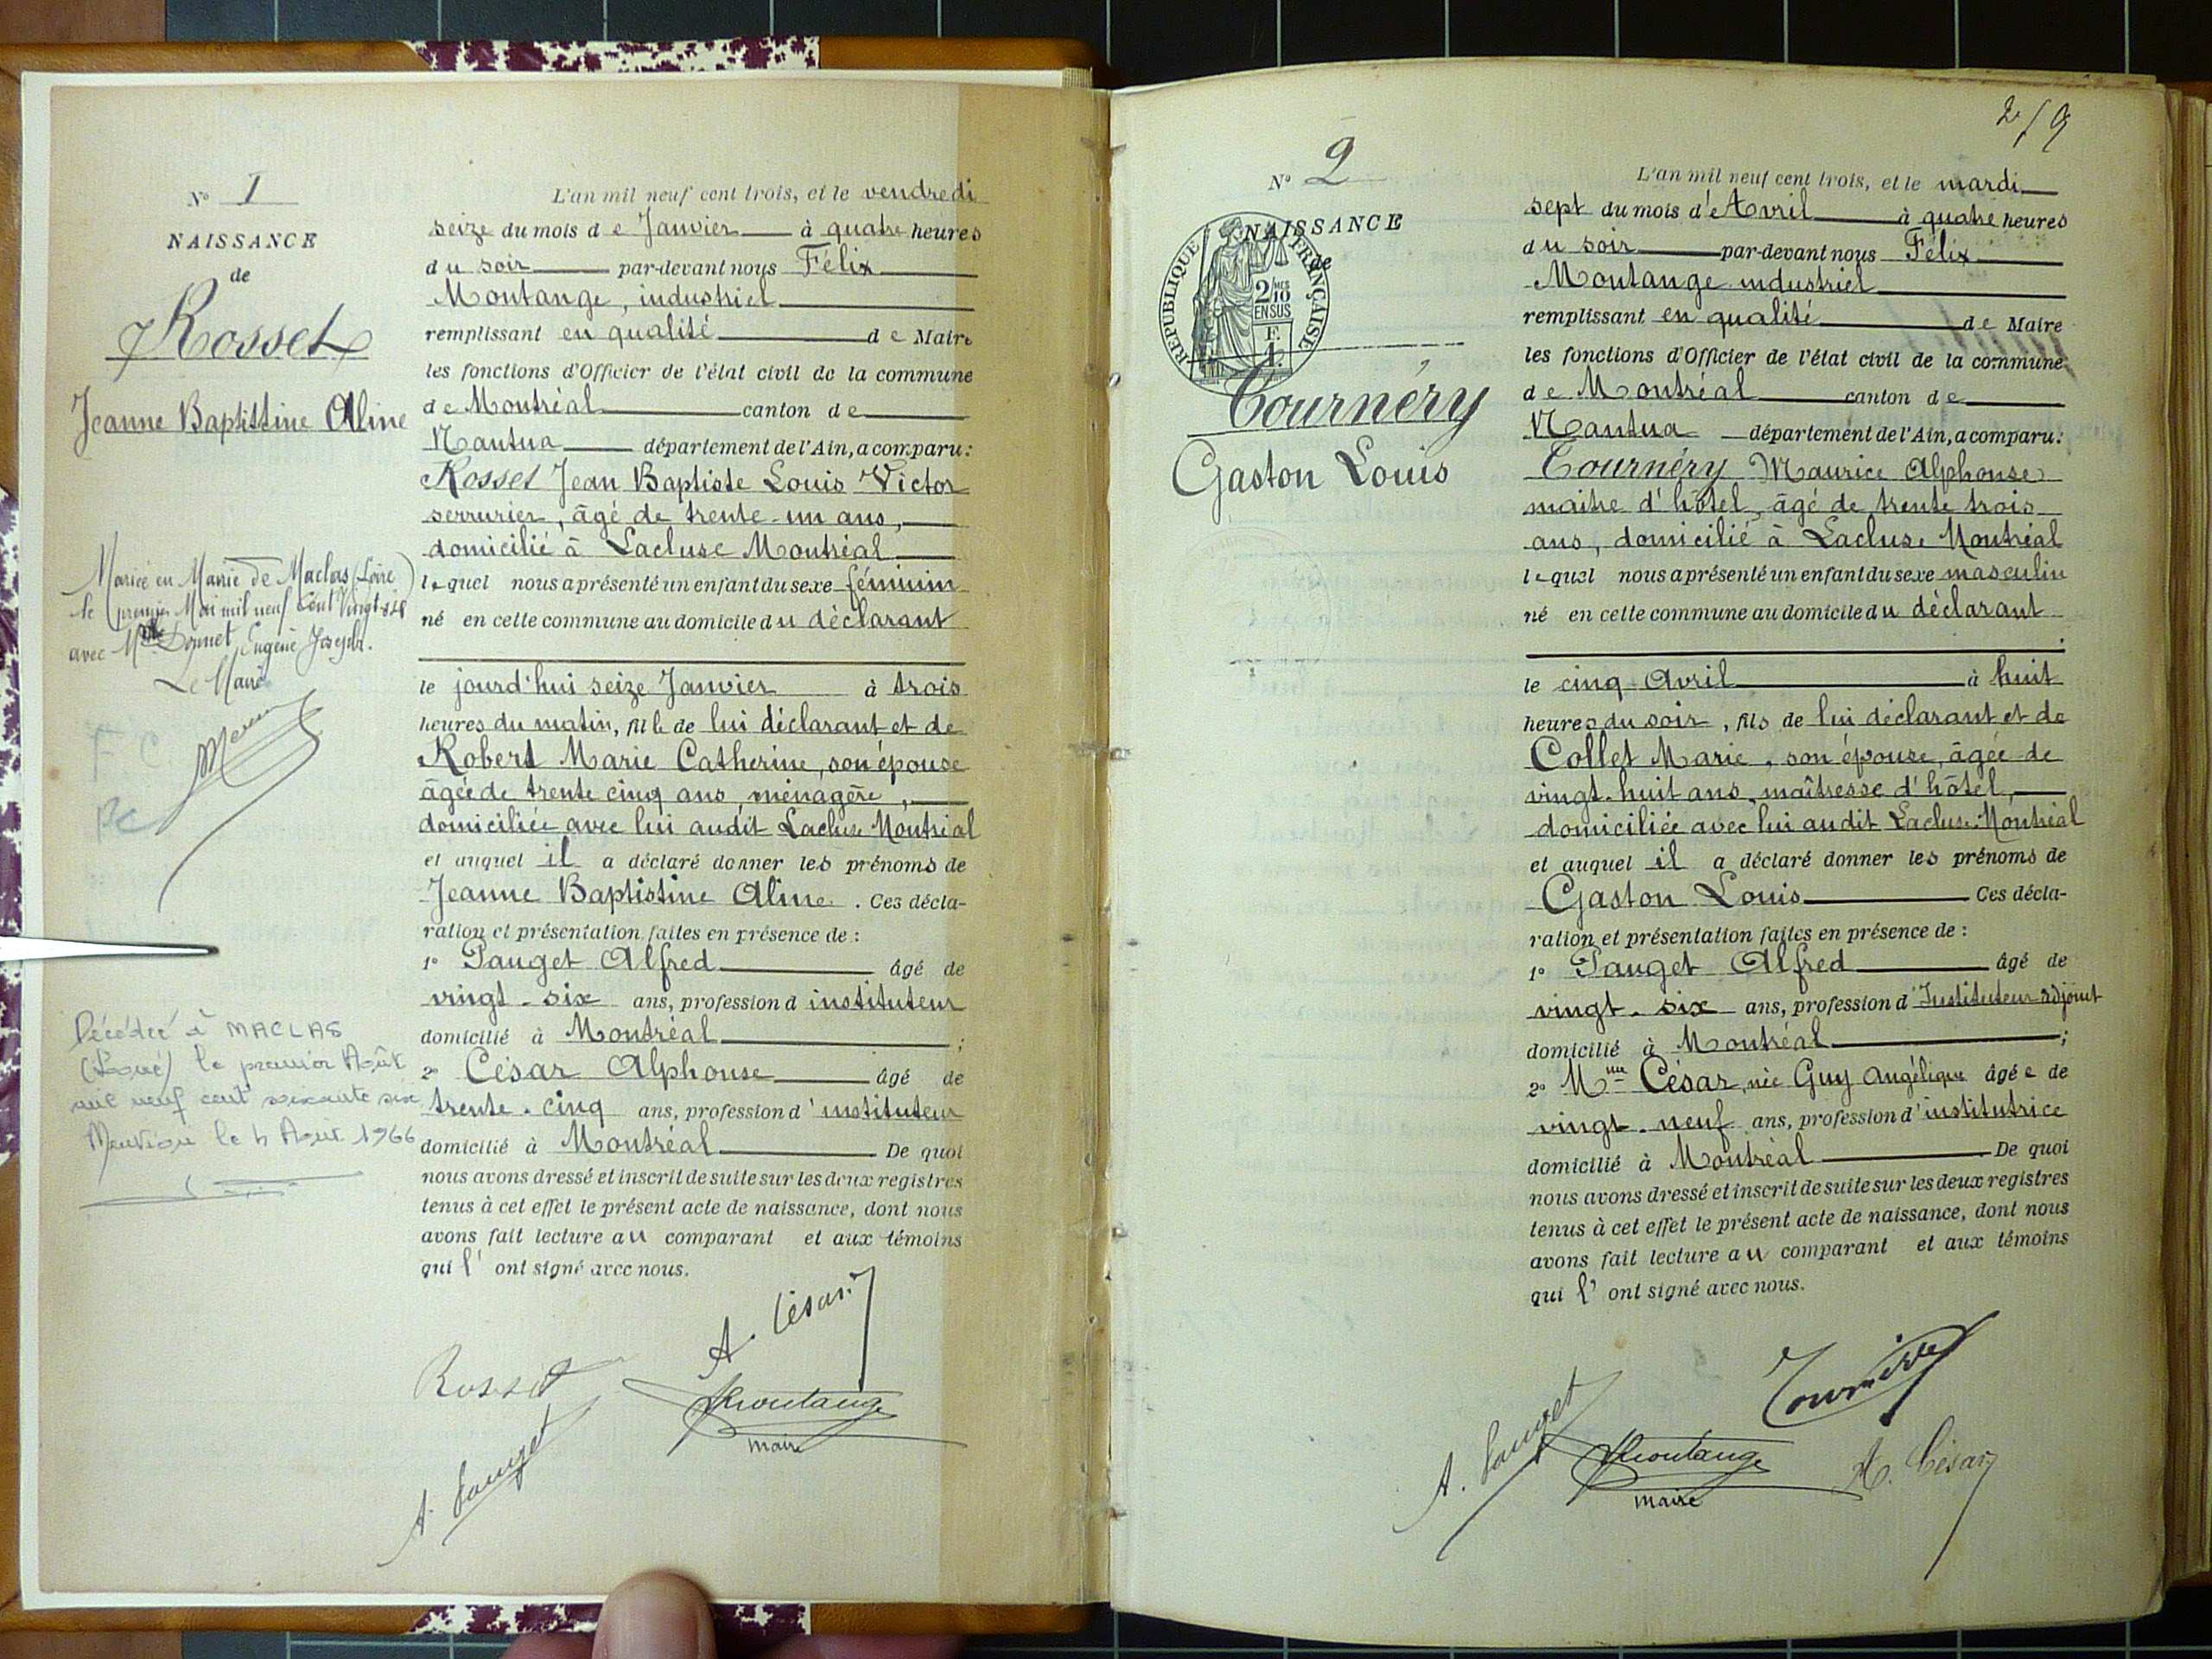 N° 1
NAISSANCE
de
Rosset
Jeanne Baptistine Aline
Mariée en Mairie de Maclas (Loire)
le premier Mai mil neuf cent vingt-six
avec Mr Bonnet, Eugène Joseph.
Le Maire
Décédée à MACLAS
(Loire) le premier Août
mil neuf cent soixante six
Mention le 4 Août 1966
L'an mil neuf cent trois, et le vendredi
seize du mois de Janvier à quatre heures
du soir par-devant nous Félix
Montange, industriel
remplissant en qualité de Maire
les fonctions d'Officier de l'état civil de la commune
de Montréal canton de
Nantua département de l'Ain, a comparu :
Rosset Jean Baptiste Louis Victor
serrurier, âgé de trente-un ans,
domicilié à Lacluse Montréal
lequel nous a présenté un enfant du sexe féminin
né en cette commune au domicile du déclarant
le jourd'hui seize Janvier à trois
heures du matin, fille de lui déclarant et de
Robert Marie Catherine, son épouse
âgée de trente cinq ans, ménagère,
domiciliée avec lui audit Lacluse Montréal
et auquel il a déclaré donner les prénoms de
Jeanne Baptistine Aline. Ces décla-
ration et présentation faites en présence de :
1° Pauget Alfred âgé de
vingt-six ans, profession d instituteur
domicilié à Montréal ;
2° César Alphonse âgé de
trente-cinq ans, profession d'instituteur
domicilié à Montréal De quoi
nous avons dressé et inscrit de suite sur les deux registres
tenus à cet effet le présent acte de naissance, dont nous
avons fait lecture au comparant et aux témoins
qui l'ont signé avec nous.
A. César
Rosset
Montange
maire
A. Pauget
2/9
N° 2
NAISSANCE
de
RÉPUBLIQUE FRANÇAISE
2/10
EN SUS
Tournéry
Gaston Louis
L'an mil neuf cent trois, et le mardi
sept du mois d'Avril à quatre heures
du soir par-devant nous Félix
Montange industriel
remplissant en qualité de Maire
les fonctions d'Officier de l'état civil de la commune
de Montréal canton de
Nantua département de l'Ain, a comparu :
Tournéry Maurice Alphonse
maitre d'hôtel, âgé de trente trois
ans, domicilié à Lacluse Montréal
lequel nous a présenté un enfant du sexe masculin
né en cette commune au domicile du déclarant
le cinq Avril à huit
heures du soir, fils de lui déclarant et de
Collet Marie, son épouse, âgée de
vingt-huit ans, maîtresse d'hôtel,
domiciliée avec lui audit Lacluse Montréal
et auquel il a déclaré donner les prénoms de
Gaston Louis Ces décla-
ration et présentation faites en présence de :
1° Pauget Alfred âgé de
vingt-six ans, profession d'Instituteur adjoint
domicilié à Montréal ;
2° Mme César, née Guy Angélique âgée de
vingt-neuf ans, profession d'institutrice
domicilié à Montréal De quoi
nous avons dressé et inscrit de suite sur les deux registres
tenus à cet effet le présent acte de naissance, dont nous
avons fait lecture au comparant et aux témoins
qui l'ont signé avec nous.
A. Pauget
Montange
maire
A. César